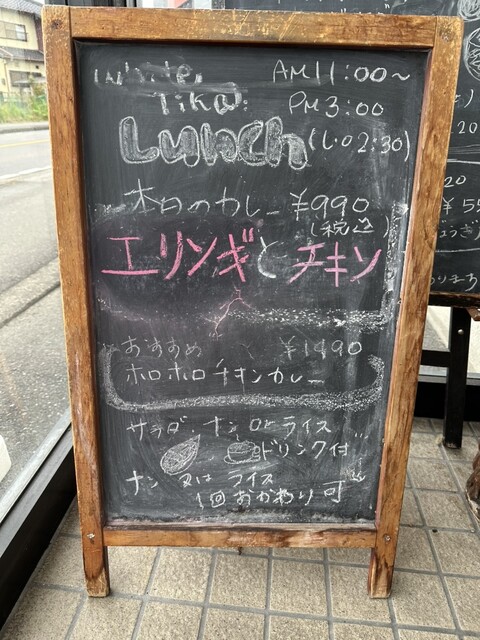 White AM11:00~
Tika: PM3:00
Lunch (L.O 2:30)
本日のカレー ¥990
(税込)
エリンギとチキン
おすすめ ¥1490
ホロホロチキンカレー
サラダ ナン or ライス
ドリンク付
ナン 又は ライス
1回おかわり可